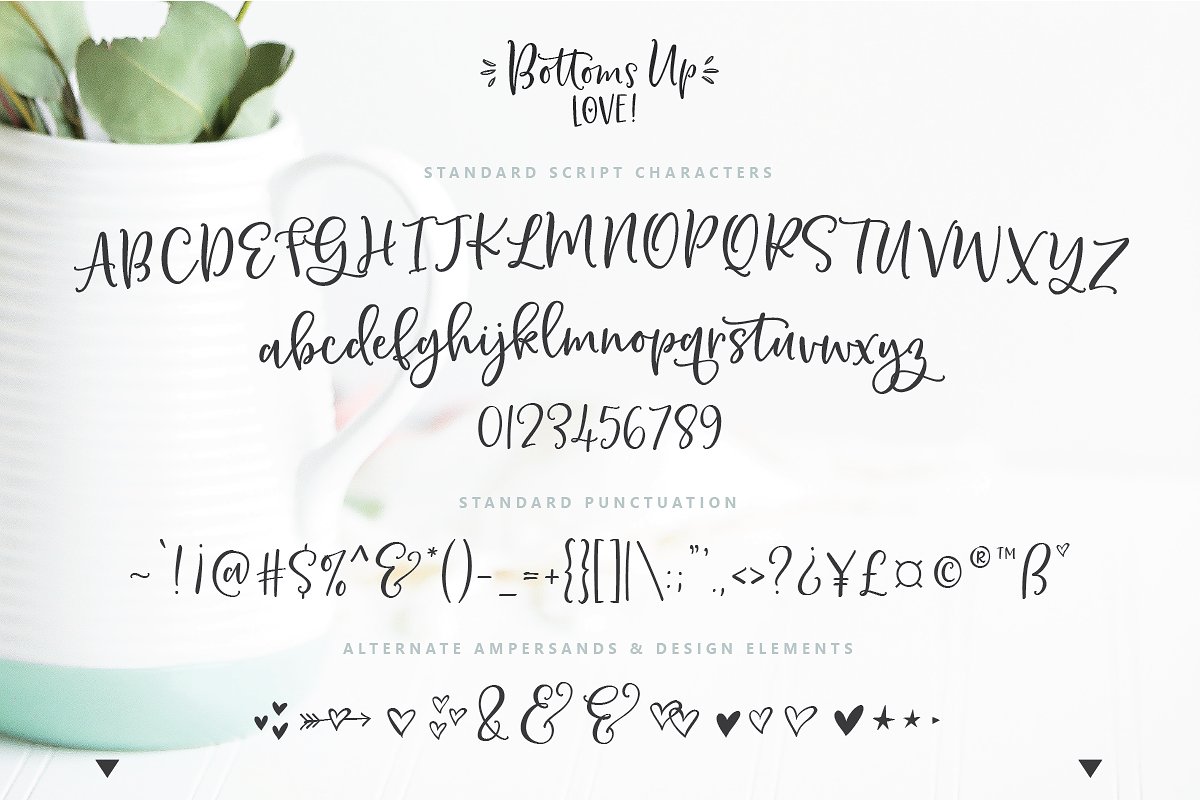 Bottoms Up
LOVE!
STANDARD SCRIPT CHARACTERS
ABCDEFGHIJKLMNOPQRSTUVWXYZ
abcdefghijklmnopqrstuvwxyz
0123456789
STANDARD PUNCTUATION
~`!¡@#$%^&*()-_=+{}[]|\:;"'.,<>?¿¥£¤©®™ß♡
ALTERNATE AMPERSANDS & DESIGN ELEMENTS
& & &